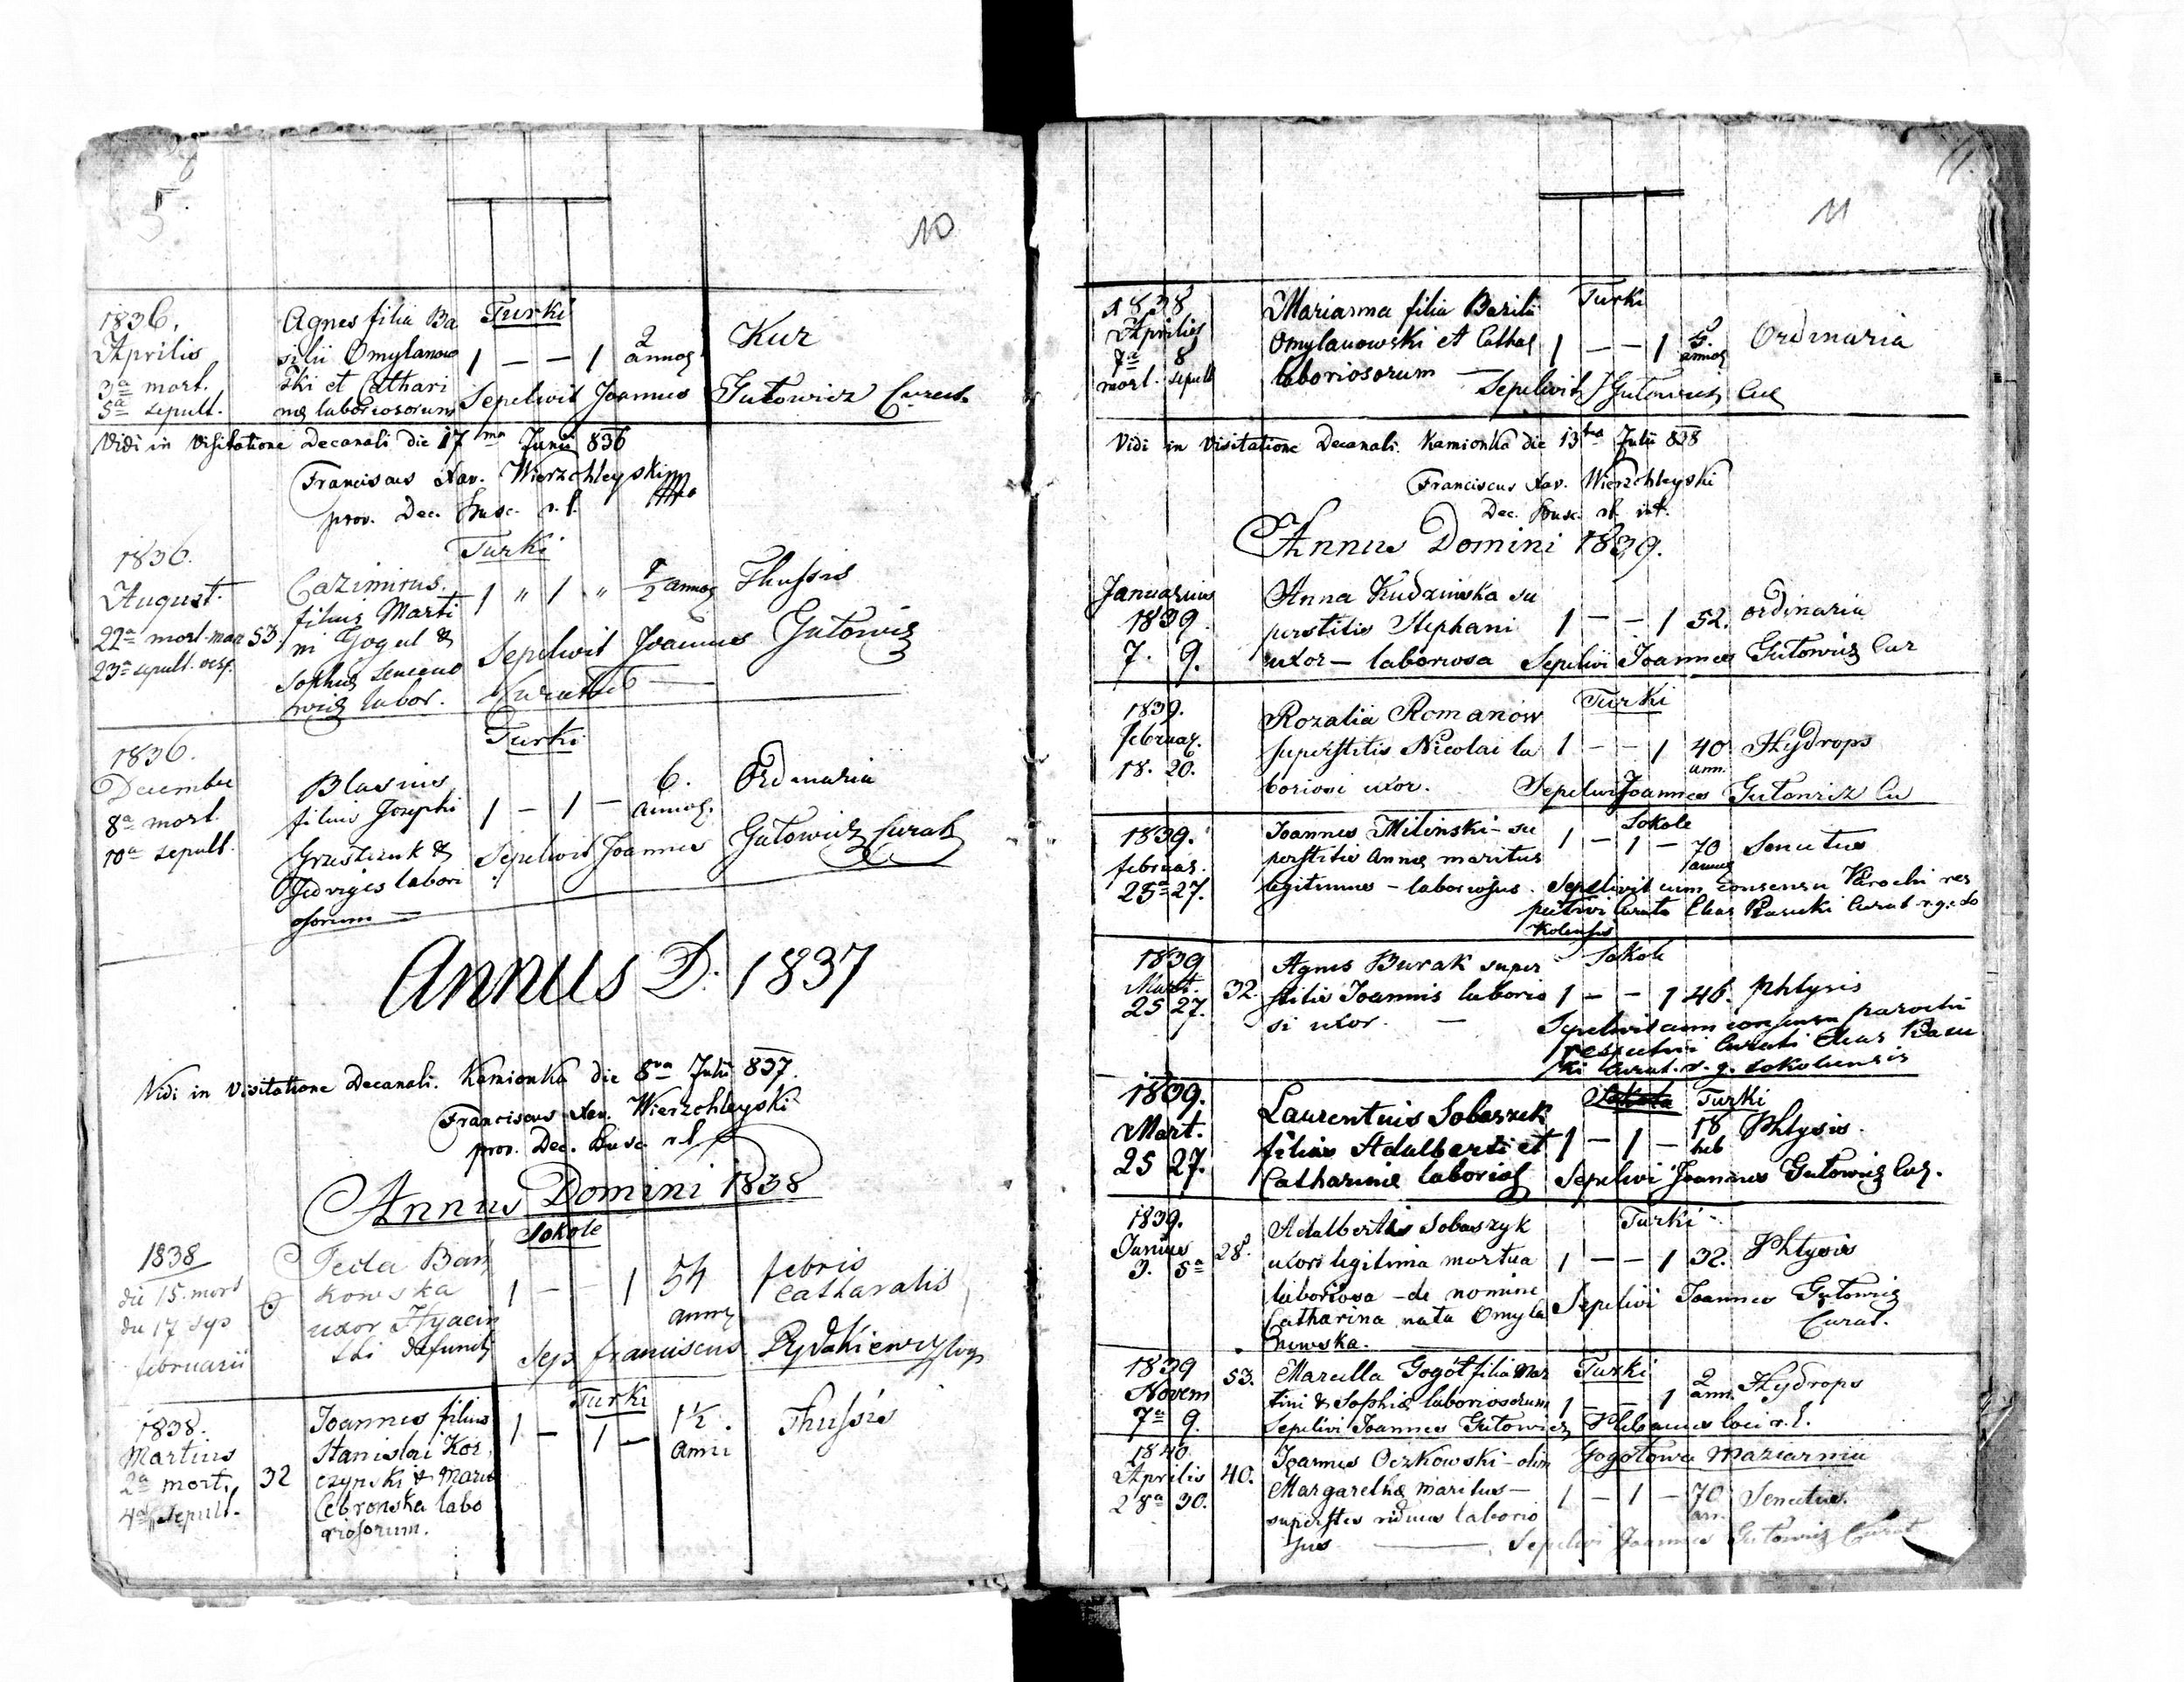 5
10
1836.
Aprilis
3a mort.
5a sepult.
Agnes filia Ba
silii Omylanow
ski et Cathari
næ laboriosorum
Turki
1 — — 1 2 annoꝝ
Kur
Sepelivit Joannes Gutowicz Curat.
Vidi in Visitatione Decanali die 17ma Junii 836
Franciscus Xav. Wierzchleyski
prov. Dec. Busc. r. l.
Turki
1836.
August.
22a mort.
53.
23a sepult.
Cazimirus
filius Marti
ni Gogul &
Sophiæ
labor.
1 " 1 " 1/2 annoꝝ
Thussis
Sepelivit Joannes Gutowicz
Curatus
Turki
1836.
December
8a mort.
10a sepult.
Blasius
filius Josephi
Grzeszczuk &
Hedvigis labori
osorum —
1 — 1 — 6. annoꝝ.
Ordinaria
Sepelivit Joannes Gutowicz Curat
Annus D: 1837
Vidi in Visitatione Decanali. Kamionka die 8va Julii 837.
Franciscus Xav. Wierzchleyski
prov. Dec. Busc. r. l.
Annus Domini 1838
Sokole
1838
die 15. mort
die 17 sep
februarii
6
Tecla Bań
kowska
uxor Hyacin
thi defuncti
1 — — 1 54 anno
febris
Catharalis
Sep. franciscus Rydakiewicz
Turki
1838.
Martius
2a mort.
4a sepult.
32
Joannes filius
Stanislai Kor
czynski & Maria
Cebronska labo
riosorum.
1 — 1 — 1½. anni
Thussis
11
11
1838
Aprilis
7a 8
mort. sepult
Marianna filia Basilii
Omylanowski et Cathaꝝ
laboriosorum —
Turki
1 — — 1 5. annoꝝ
Ordinaria
Sepelivit J Gutowicz Cur
Vidi in Visitatione Decanali. Kamionka die 13tia Julii 838
Franciscus Xav. Wierzchleyski
Dec. Busc. rl.
Annus Domini 1839.
Januarius
1839.
7. 9.
Anna Kudzinska su
perstitis Stephani
uxor — laboriosa
1 — — 1 52.
ordinaria
Sepelivi Joannes Gutowicz Cur
Turki
1839.
februaꝝ.
18. 20.
Rozalia Romanów
superstitis Nicolai la
boriosi uxor.
1 — — 1 40 ann.
Hydrops
Sepelivi Joannes Gutowicz Cu
Sokole
1839.
februar.
25a 27.
Joannes Milinski - su
perstitis Annæ maritus
legitimus - laboriosus.
1 — 1 — 70 annoꝝ
Senectus
Sepelivit cum consensu Parochi res
pectivi Curati Elias Rasucki Curat r.g. So
kolensis
Sokole
1839
Mart.
25 27.
32.
Agnes Burak super
stitis Joannis laborio
si uxor. —
1 — — 1 46.
Phtysis
Sepelivit cum consensu parochi
respectivi Curati Elias Rasu
ki Curat. r. g. Sokolensis
Sokole Turki
1839.
Mart.
25 27.
Laurentius Sobaszek
filius Adalberti et
Catharinæ laborioꝝ
1 — 1 — 18 heb
Phtysis.
Sepelivi Joannes Gutowicz Cuꝝ.
Turki
1839.
Junius
3. 5a
28.
Adalbertis Sobaszyk
uxor legitima mortua
laboriosa - de nomine
Catharina nata Omyla
nowska.
1 — — 1 32.
Phtysis
Sepelivi Joannes Gutowicz
Curat.
1839
Novem
7a 9.
53.
Marcella Gogół filia Mar
tini & Sophiæ laboriosorum
Turki
1 — 1 2 ann.
Hydrops
Sepelivi Joannes Gutowicz Plebanus loci r. l.
1840.
Aprilis
28a 30.
40.
Joannes Oczkowski - olim
Margarethæ maritus —
superstes viduus laborio
sus —
Gogołowa Maziarnia
1 — 1 — 70 ann.
Senectus.
Sepelivi Joannes Gutowicz Curat